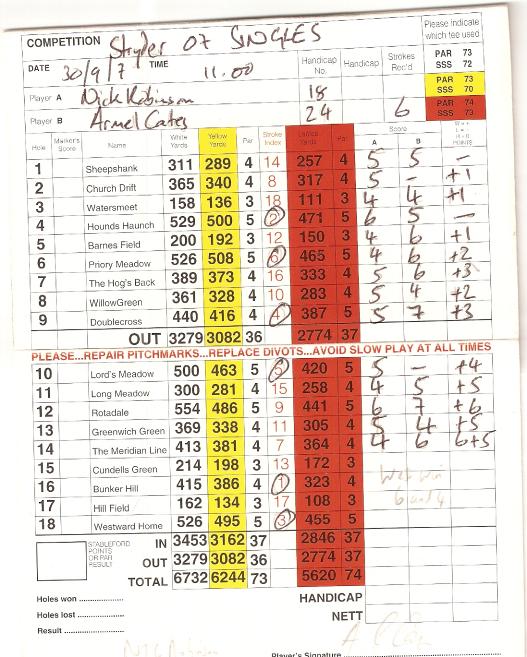 COMPETITION Stryder 07 SINGLES
Please indicate which tee used
DATE 30/9/7 TIME 11.00
Handicap No. Handicap Strokes Rec'd
PAR 73
SSS 72
Player A Nick Robinson 18
PAR 73
SSS 70
Player B Armel Cates 24 6
PAR 74
SSS 73
Hole Marker's Score Name White Yards Yellow Yards Par Stroke Index Ladies Yards Par Score A B POINTS
1 Sheepshank 311 289 4 14 257 4 5 5 –
2 Church Drift 365 340 4 8 317 4 5 - +1
3 Watersmeet 158 136 3 18 111 3 4 4 +1
4 Hounds Haunch 529 500 5 2 471 5 6 5 –
5 Barnes Field 200 192 3 12 150 3 4 6 +1
6 Priory Meadow 526 508 5 6 465 5 4 6 +2
7 The Hog's Back 389 373 4 16 333 4 5 6 +3
8 WillowGreen 361 328 4 10 283 4 5 4 +2
9 Doublecross 440 416 4 4 387 5 5 7 +3
OUT 3279 3082 36 2774 37
PLEASE...REPAIR PITCHMARKS...REPLACE DIVOTS...AVOID SLOW PLAY AT ALL TIMES
10 Lord's Meadow 500 463 5 420 5 5 - +4
11 Long Meadow 300 281 4 15 258 4 4 5 +5
12 Rotadale 554 486 5 9 441 5 6 7 +6
13 Greenwich Green 369 338 4 11 305 4 5 4 +5
14 The Meridian Line 413 381 4 7 364 4 4 6 6+5
15 Cundells Green 214 198 3 13 172 3
16 Bunker Hill 415 386 4 1 323 4
17 Hill Field 162 134 3 17 108 3
18 Westward Home 526 495 5 3 455 5
win
6 and 4
STABLEFORD POINTS OR PAR RESULT
IN 3453 3162 37 2846 37
OUT 3279 3082 36 2774 37
TOTAL 6732 6244 73 5620 74
Holes won ..................
HANDICAP
Holes lost ..................
NETT
Result ..................
Player's Signature